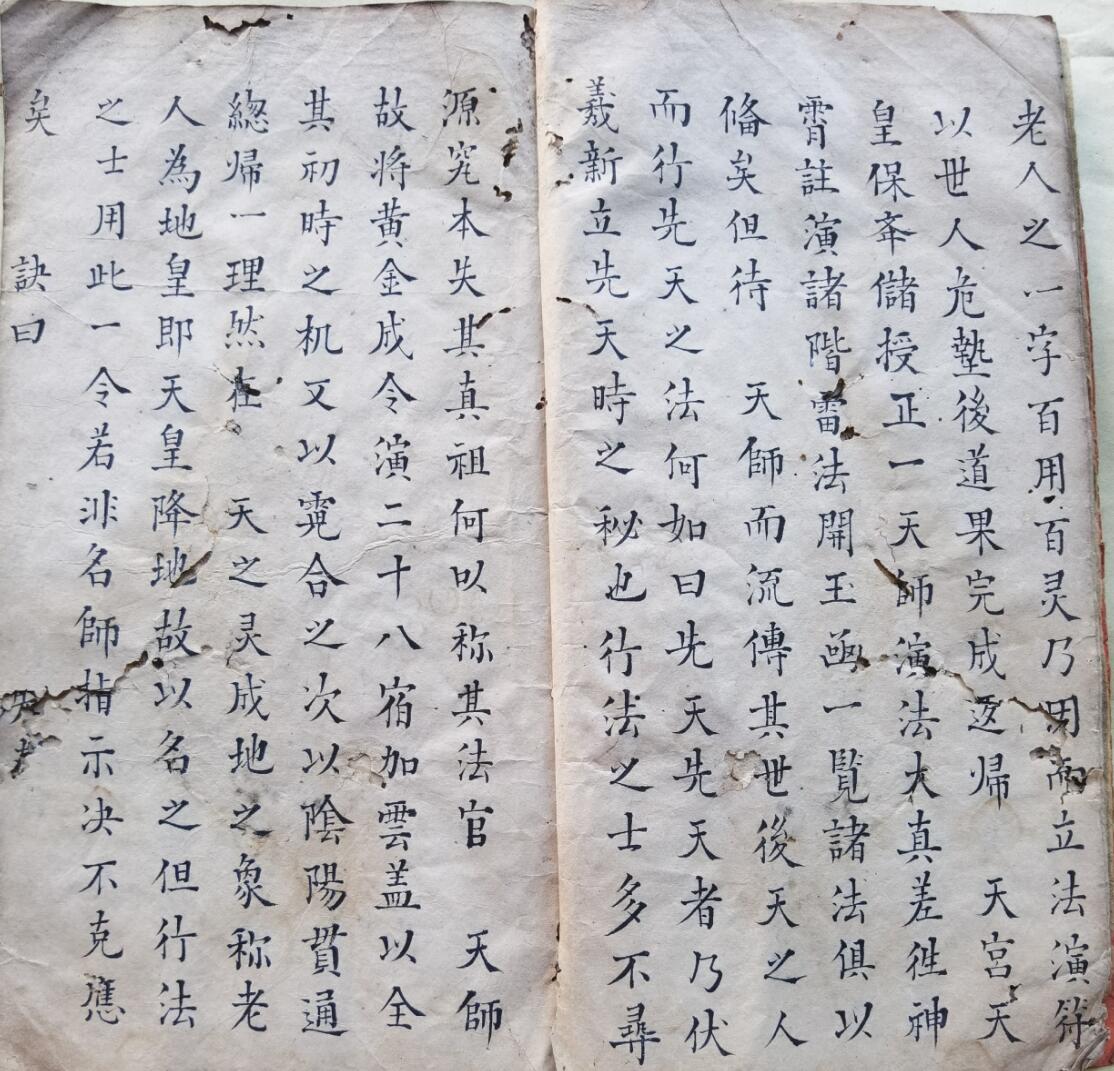 老人之一字百用百灵乃用而立法演符
以世人危墊後道果完成返帰　天宮天
皇保奉儲授正一天師演法大真差徃神
霄註演諸階雷法開玉凾一覧諸法俱以
偹矣但待　天師而流傳其世後天之人
而行先天之法何如曰先天先天者乃伏
羲新立先天時之秘也行法之士多不尋
源究本失其真祖何以称其法官　天師
故将黄金成令演二十八宿加雲盖以全
其初時之机又以霓合之次以陰陽貫通
緫帰一理然在　天之灵成地之象称老
人為地皇即天皇降地故以名之但行法
之士用此一令若非名師指示决不克應
矣　訣曰　天老